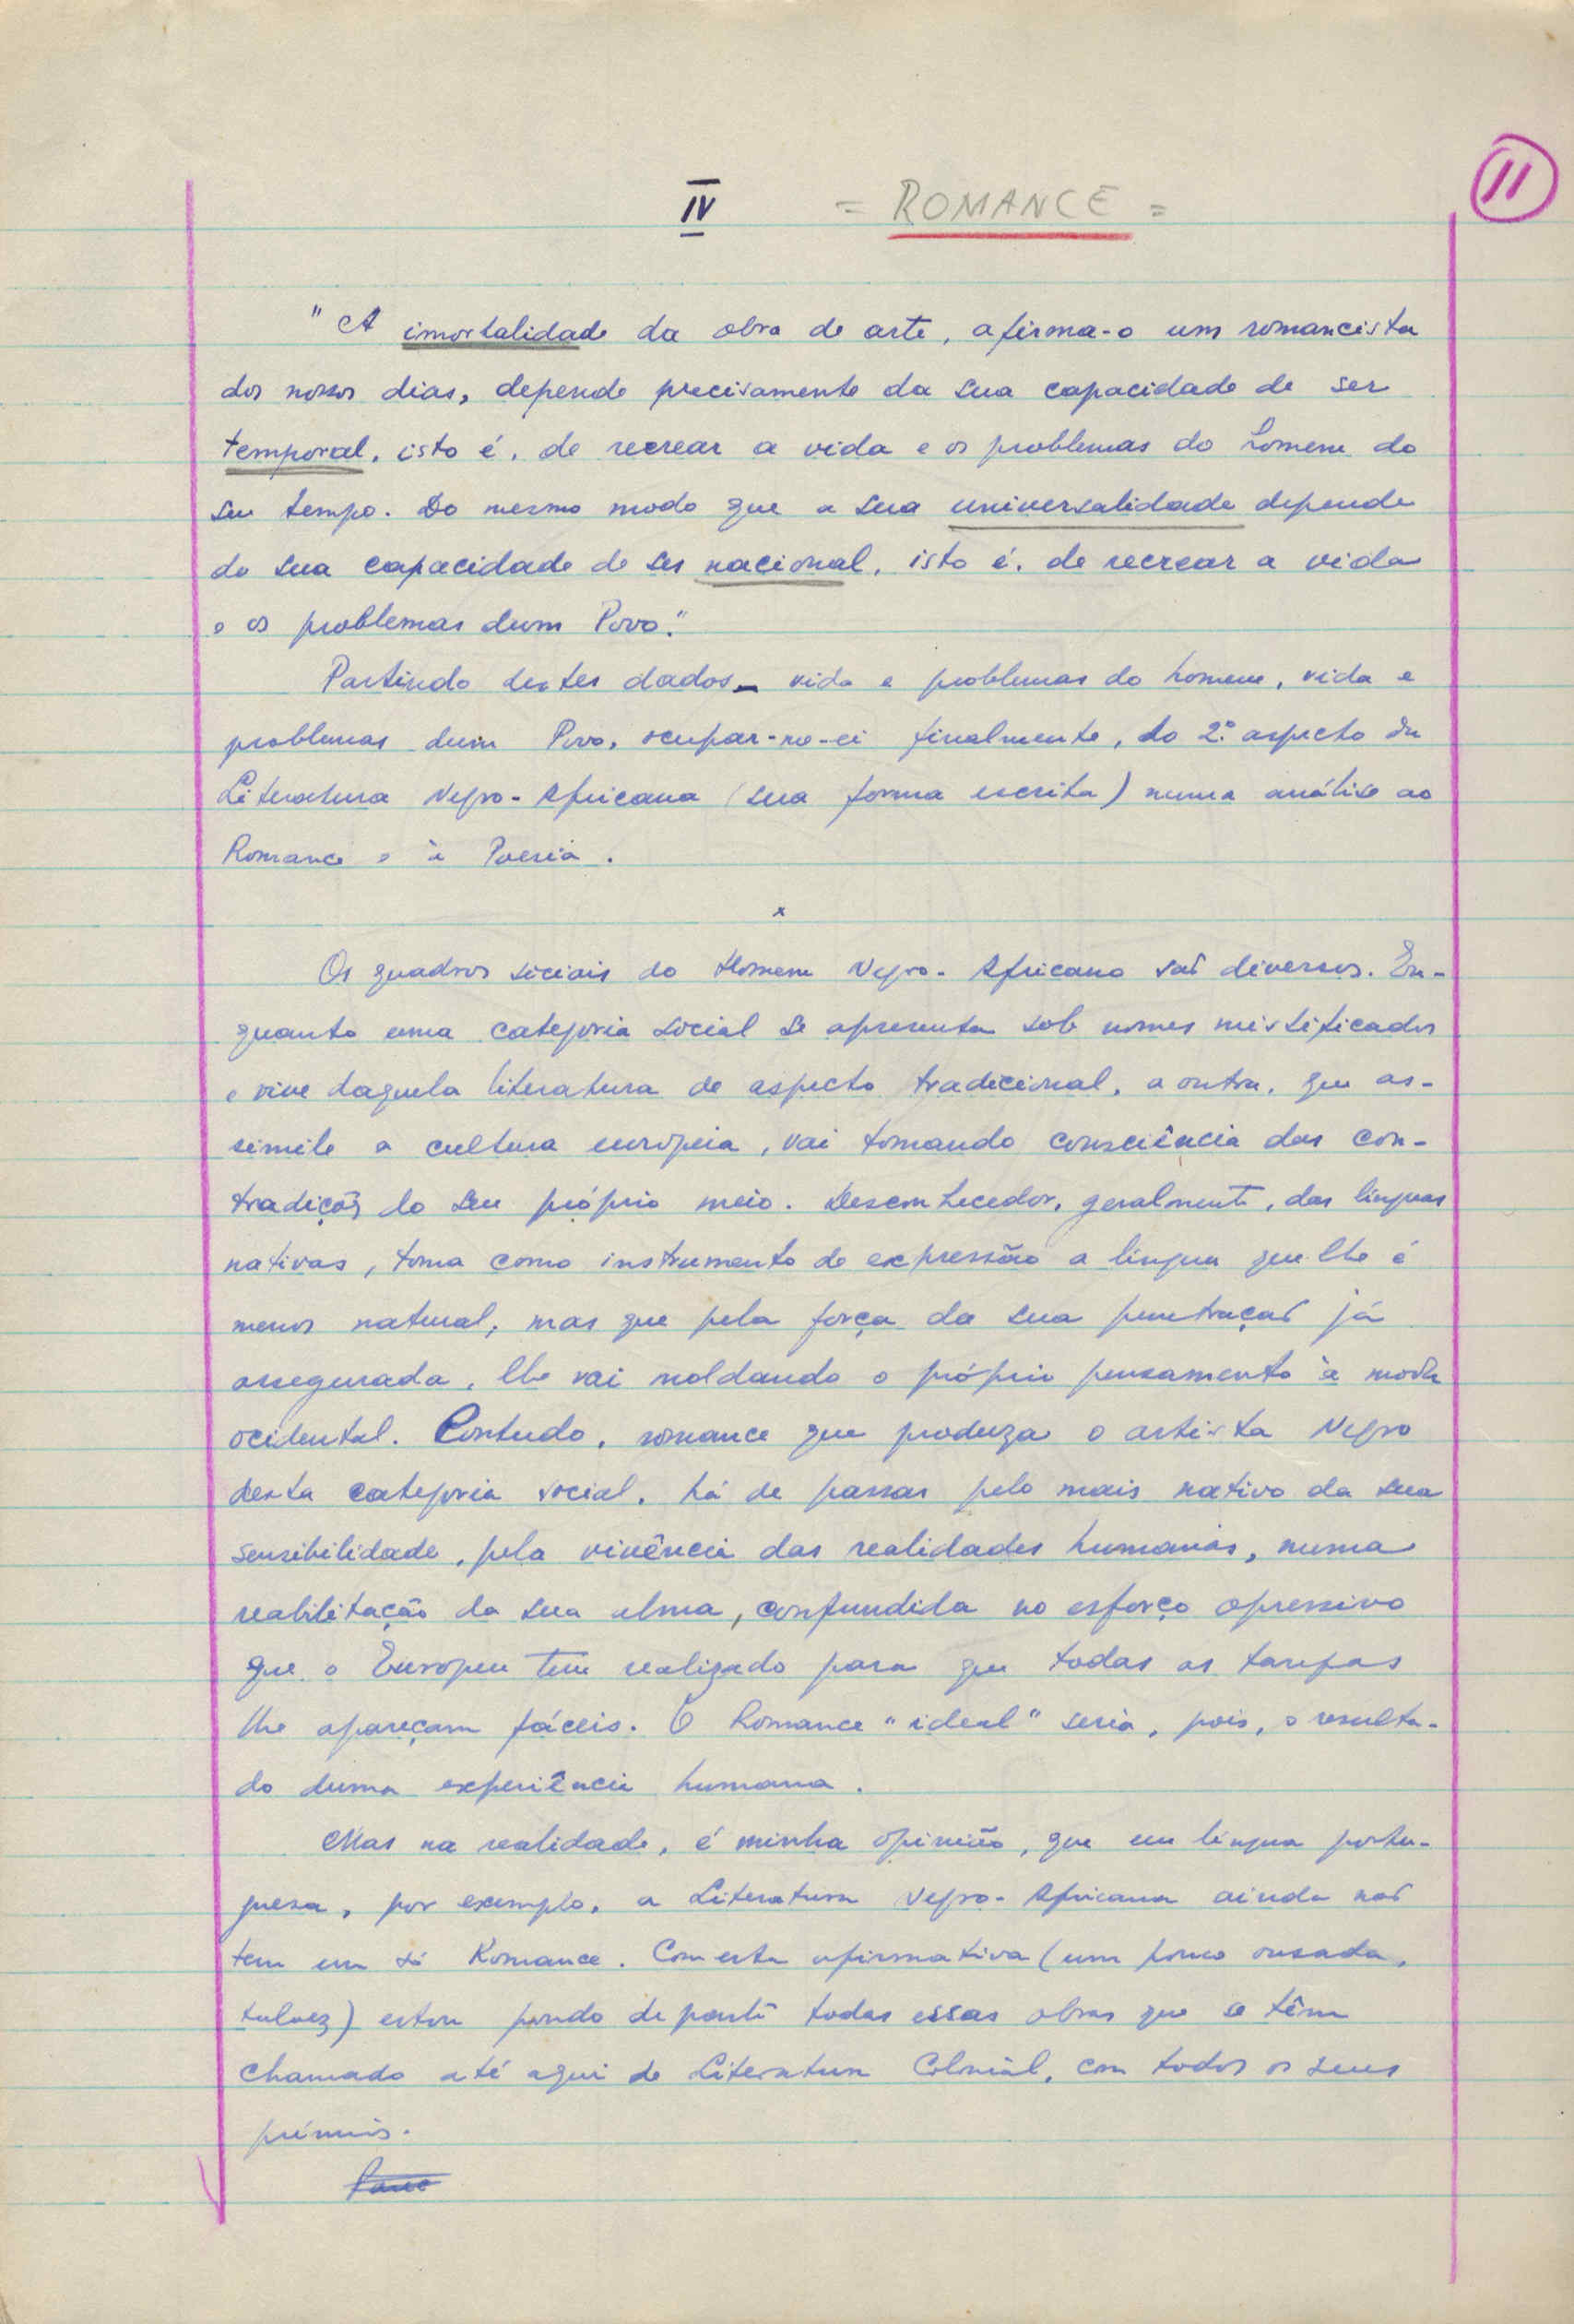 11
IV = ROMANCE =
"A imortalidade da obra de arte, afirma-o um romancista
dos nossos dias, depende precisamente da sua capacidade de ser
temporal, isto é, de recrear a vida e os problemas do homem do
seu tempo. Do mesmo modo que a sua universalidade depende
da sua capacidade de ser nacional, isto é, de recrear a vida
e os problemas dum Povo."
Partindo destes dados — vida e problemas do homem, vida e
problemas dum Povo, ocupar-me-ei finalmente, do 2.º aspecto da
Literatura Negro-Africana (sua forma escrita) numa análise ao
Romance e à Poesia.
x
Os quadros sociais do Homem Negro-Africano são diversos. En-
quanto uma categoria social se apresenta sob nomes mistificados
e vive daquela literatura de aspecto tradicional, a outra, que as-
simila a cultura europeia, vai tomando consciência das con-
tradições do seu próprio meio. Desconhecedor, geralmente, das línguas
nativas, toma como instrumento de expressão a língua que lhe é
menos natural, mas que pela força da sua penetração já
assegurada, lhe vai moldando o próprio pensamento à moda
ocidental. Contudo, romance que produza o artista Negro
desta categoria social, há de passar pelo mais nativo da sua
sensibilidade, pela vivência das realidades humanas, numa
reabilitação da sua alma, confundida no esforço opressivo
que o Europeu tem realizado para que todas as tarefas
lhe apareçam fáceis. O Romance "ideal" seria, pois, o resulta-
do duma experiência humana.
Mas na realidade, é minha opinião, que em língua portu-
guesa, por exemplo, a Literatura Negro-Africana ainda não
tem um só Romance. Com esta afirmativa (um pouco ousada,
talvez) estou pondo de parte todas essas obras que se têm
chamado até aqui de Literatura Colonial, com todos os seus
prémios.